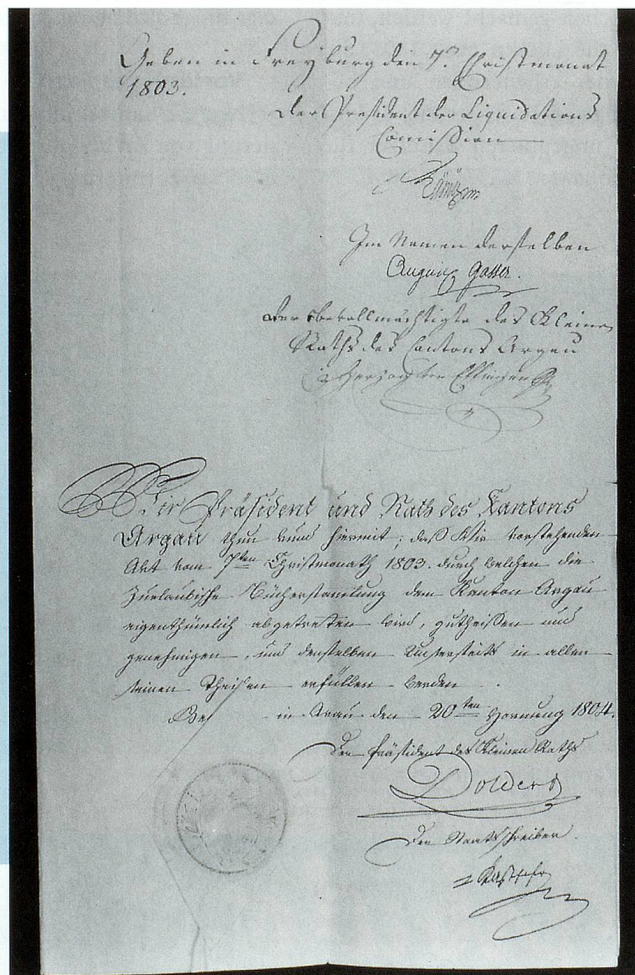 Geben in Freyburg den 7.n Christmonat
1803.
Der President der Liquidations
Comission
Im Namen derselben
August Gasser.
der bevollmächtigte des Kleinen
Raths des Cantons Argau
Herzog von Effingen
Wir Präsident und Rath des Kantons
Argau thun kund hiermit; daß Wir vorstehenden
Akt vom 7ten Christmonath 1803. durch welchen die
Zurlaubische Büchersammlung dem Kanton Argau
eigenthümlich abgetretten wird, gutheissen und
genehmigen, und denselben Unserseits in allen
seinen Theilen erfüllen werden.
in Arau den 20ten Hornung 1804.
Der Präsident des Kleinen Raths
Dolder
Der Staatsschreiber.
Kasthofer